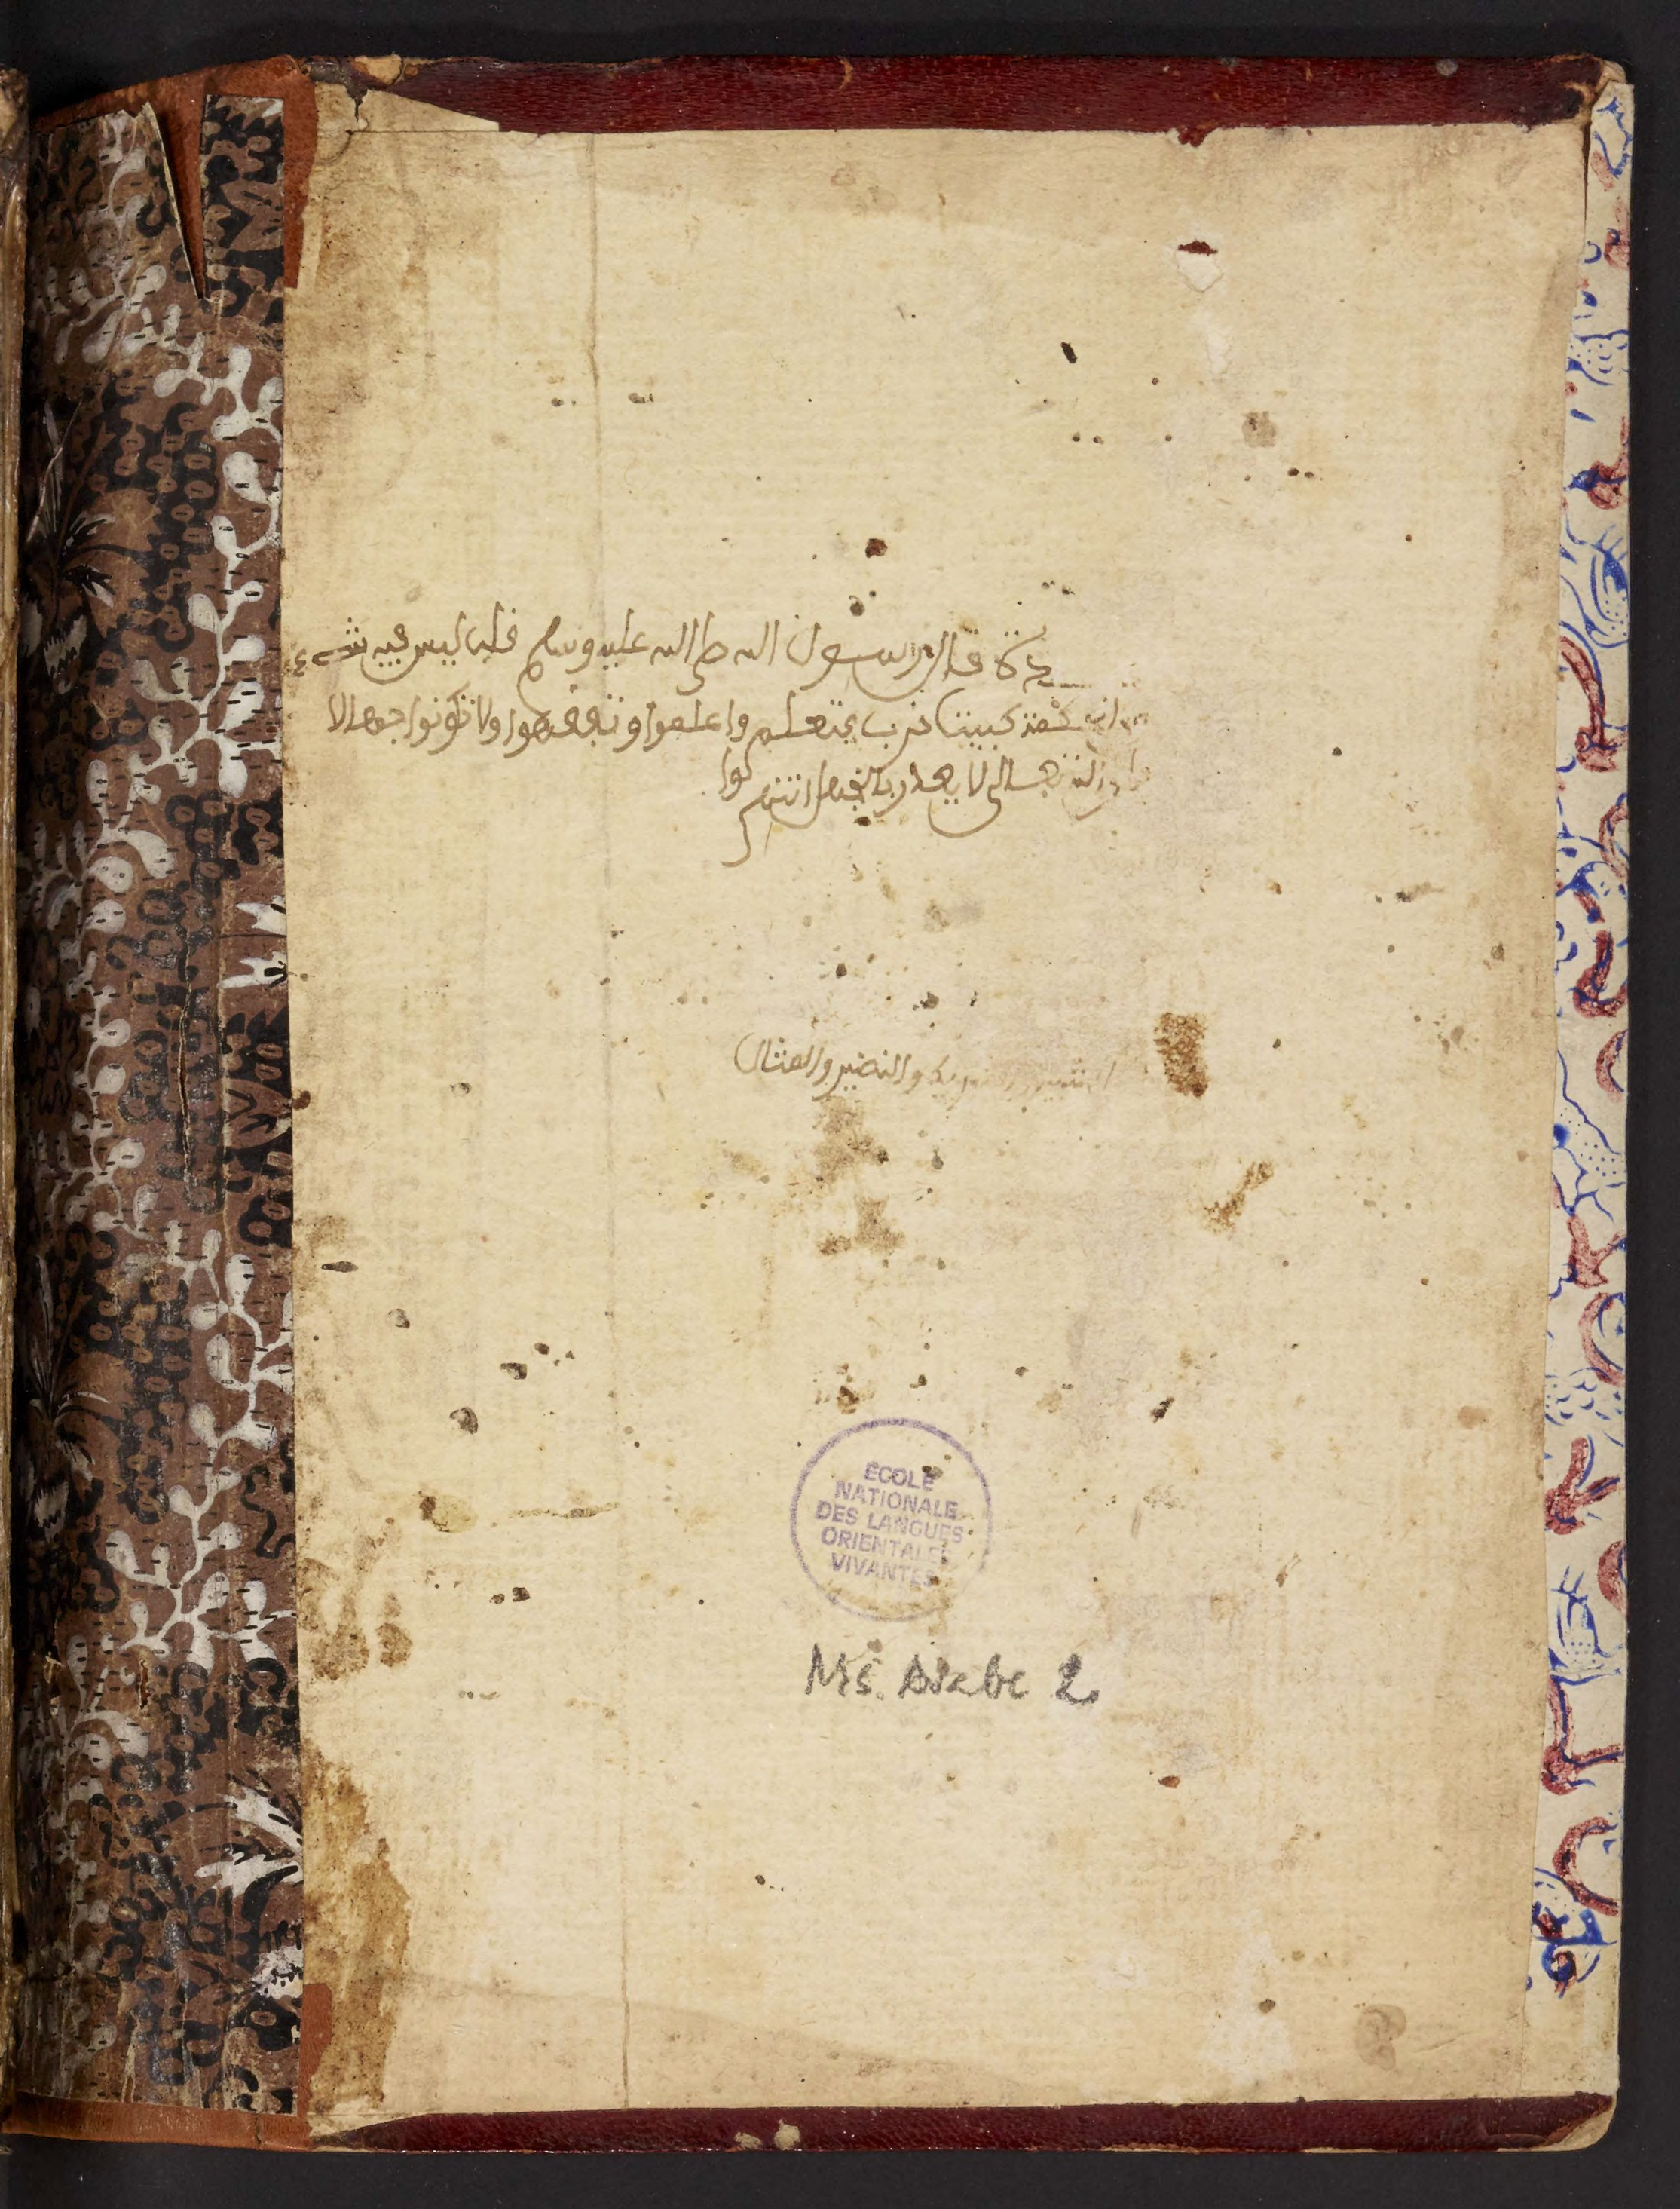 قال رسول الله صلى الله عليه وسلم قلب ليس فيه شيء
كبيت خرب فتعلم واعلموا وتفقهوا ولا تكونوا جهالا
تعالى لا يعذر بالجهل انتهى
والنضير والمثال
ECOLE
NATIONALE
DES LANGUES
ORIENTALES
VIVANTES
Ms. Arabe 2